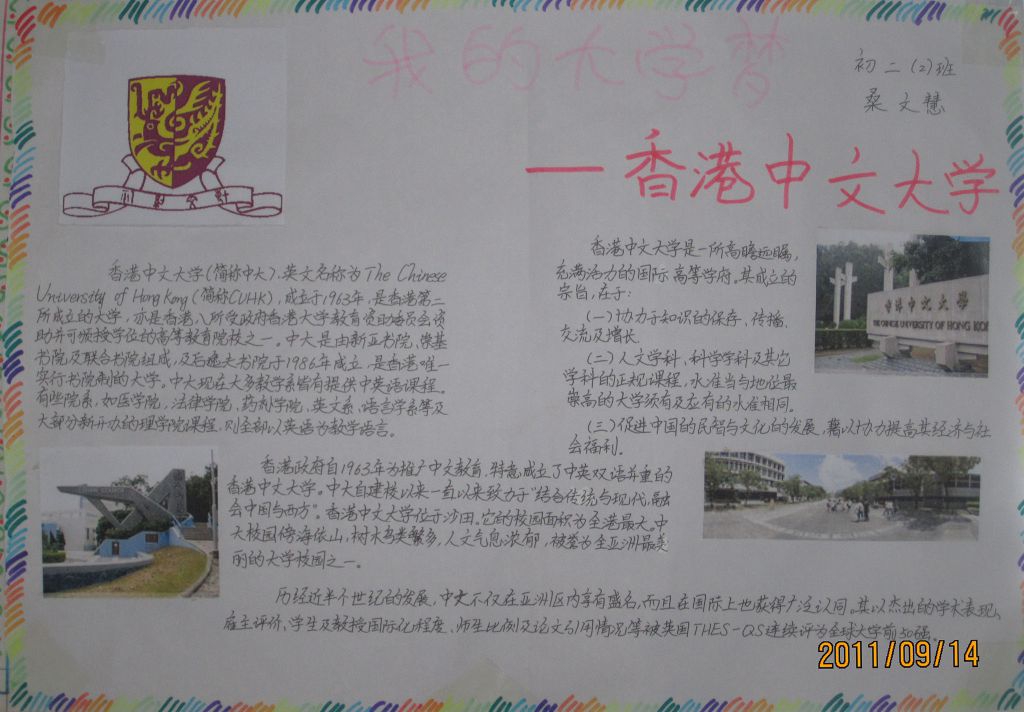 我的大学梦
初二(2)班
桑文慧
—香港中文大学
香港中文大学(简称中大),英文名称为The Chinese
University of Hong Kong(简称CUHK),成立于1963年,是香港第二
所成立的大学,亦是香港八所受政府香港大学教育资助委员会资
助并可颁授学位的高等教育院校之一。中大是由新亚书院、崇基
书院及联合书院组成,及后逸夫书院于1986年成立,是香港唯一
实行书院制的大学。中大现在大多数学系皆有提供中英语课程。
有些院系,如医学院,法律学院,药剂学院,英文系,语言学系等及
大部分新开办的理学院课程,则全部以英语为教学语言。
香港中文大学是一所高瞻远瞩,
充满活力的国际高等学府。其成立的
宗旨,在于:
(一)协力于知识的保存、传播、
交流及增长
(二)人文学科、科学学科及其它
学科的正规课程,水准当与地位最
崇高的大学须有及应有的水准相同。
(三)促进中国的民智与文化的发展,藉以协力提高其经济与社
会福利。
香港中文大学
THE CHINESE UNIVERSITY OF HONG KO
香港政府自1963年为推广中文教育,特意成立了中英双语并重的
香港中文大学。中大自建校以来一直以来致力于"结合传统与现代,融
会中国与西方"。香港中文大学位于沙田。它的校园面积为全港最大。中
大校园傍海依山,树木鸟类繁多,人文气息浓郁,被誉为全亚洲最美
丽的大学校园之一。
历经近半个世纪的发展,中大不仅在亚洲区内享有盛名,而且在国际上也获得广泛认同。其以杰出的学术表现、
雇主评价、学生及教授国际化程度、师生比例及论文引用情况等被英国THES-QS连续评为全球大学前50强。
2011/09/14